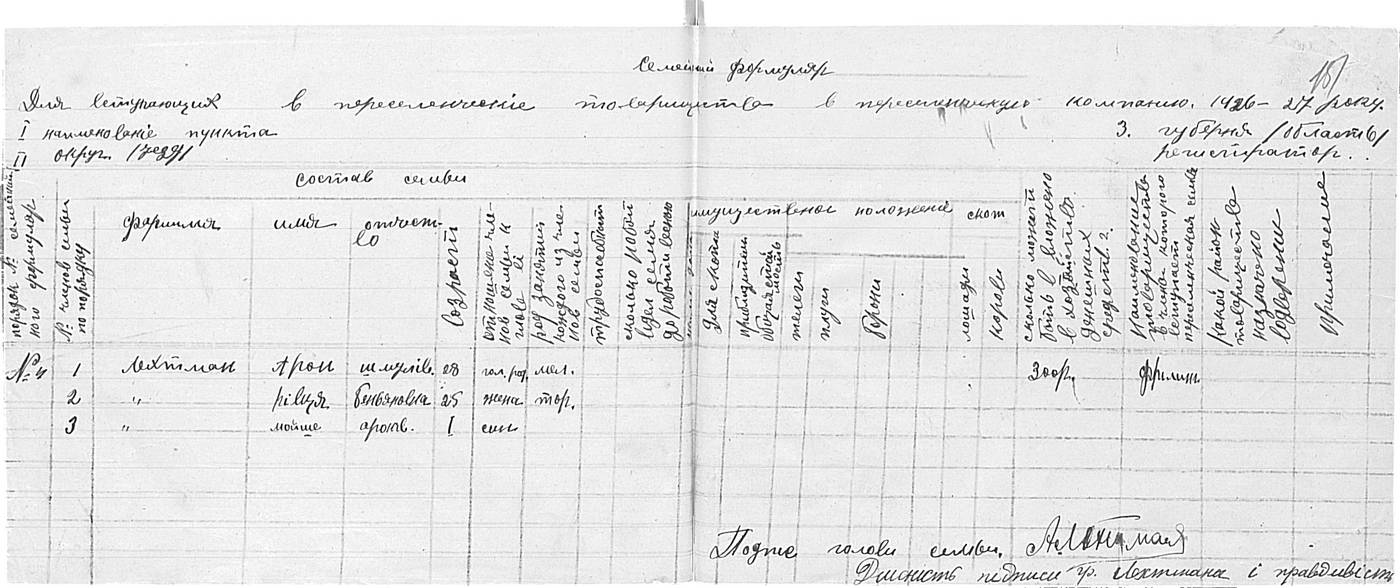 Семейний формуляр
15
Для вступающих в переселенческіе товарищества в переселенческую компанию. 1926-27 року.
I наименованіе пункта
3. губерня /область/
II округ. /уезд/
регистратор..
состав семьи
порядок № семейного формуляр
№ членов семьи по порядку
фамилия
имя
отчест-
во
возраст
отношение чле-
нов семьи к
главе ей
род занятий
каждого из чле-
нов семьи
трудоспособност
сколько робот
едел семья
до работи весною
имущественое положение
скот
для скота
приблизител
телеги
плуги
борони
лошади
корови
сколько может
быть вложено
в хозяйство
денежних
средств?
Наименование
товариществ
в члени которого
вступает
переселенческая семья
какой район
товариществе
назначено
водворени
Примечание
№ 4 1 Лехтман Арон шмулів. 28 гол. род. мел. 300р. фрилинг
2 " рівця беньяновна 25 жена тор.
3 " мойше аронв. 1 син
Подпис голови семьи. А Лехтман
Дійсність підписи гр. Лехтмана і правдивість